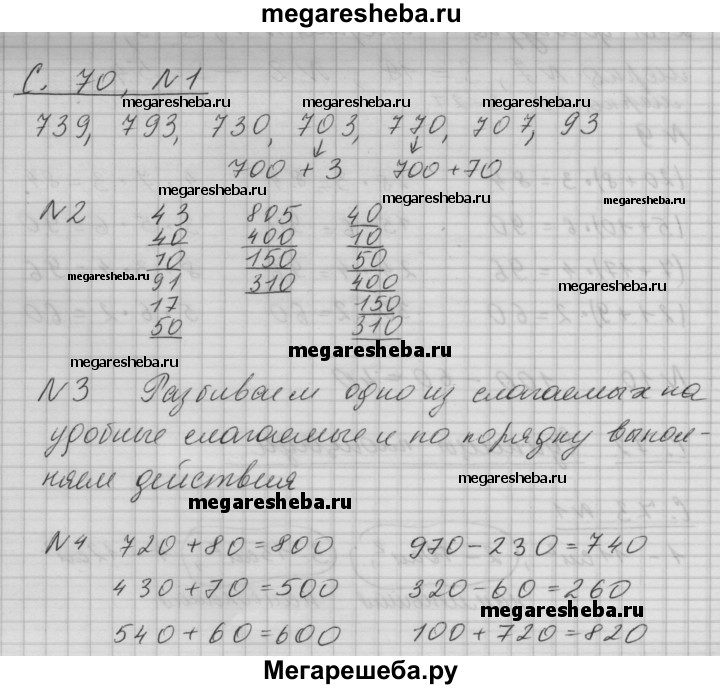 megaresheba.ru
С. 70, №1
megaresheba.ru megaresheba.ru megaresheba.ru
739, 793, 730, 703, 770, 707, 93
700 + 3 700 + 70
megaresheba.ru megaresheba.ru
№2 43 805 40
40 400 10
10 150 50
megaresheba.ru 91 310 400 megaresheba.ru
17 150
50 310
megaresheba.ru megaresheba.ru
№3 Разбиваем одно из слагаемых на
удобные слагаемые и по порядку выпол-
няем действия megaresheba.ru
megaresheba.ru
№4 720 + 80 = 800 970 - 230 = 740
430 + 70 = 500 320 - 60 = 260
megaresheba.ru
540 + 60 = 600 100 + 720 = 820
Мегарешеба.ру